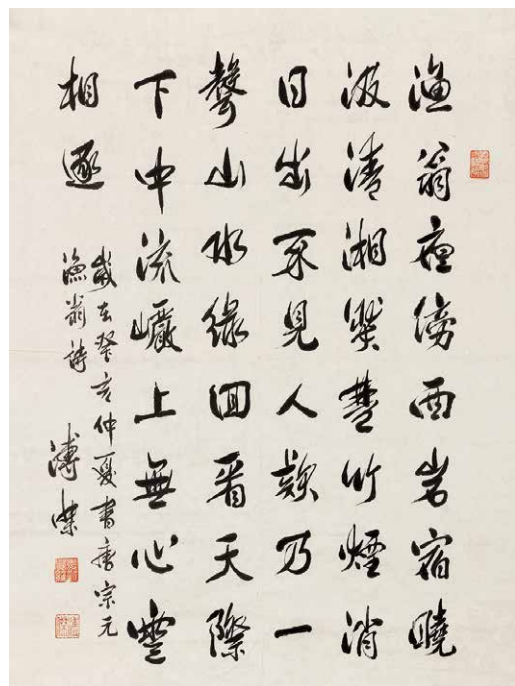 漁翁夜傍西岩宿曉
汲清湘燃楚竹煙消
日出不見人欸乃一
聲山水綠回看天際
下中流巖上無心雲
相逐
歲在癸亥仲夏書唐宗元
漁翁詩
溥傑